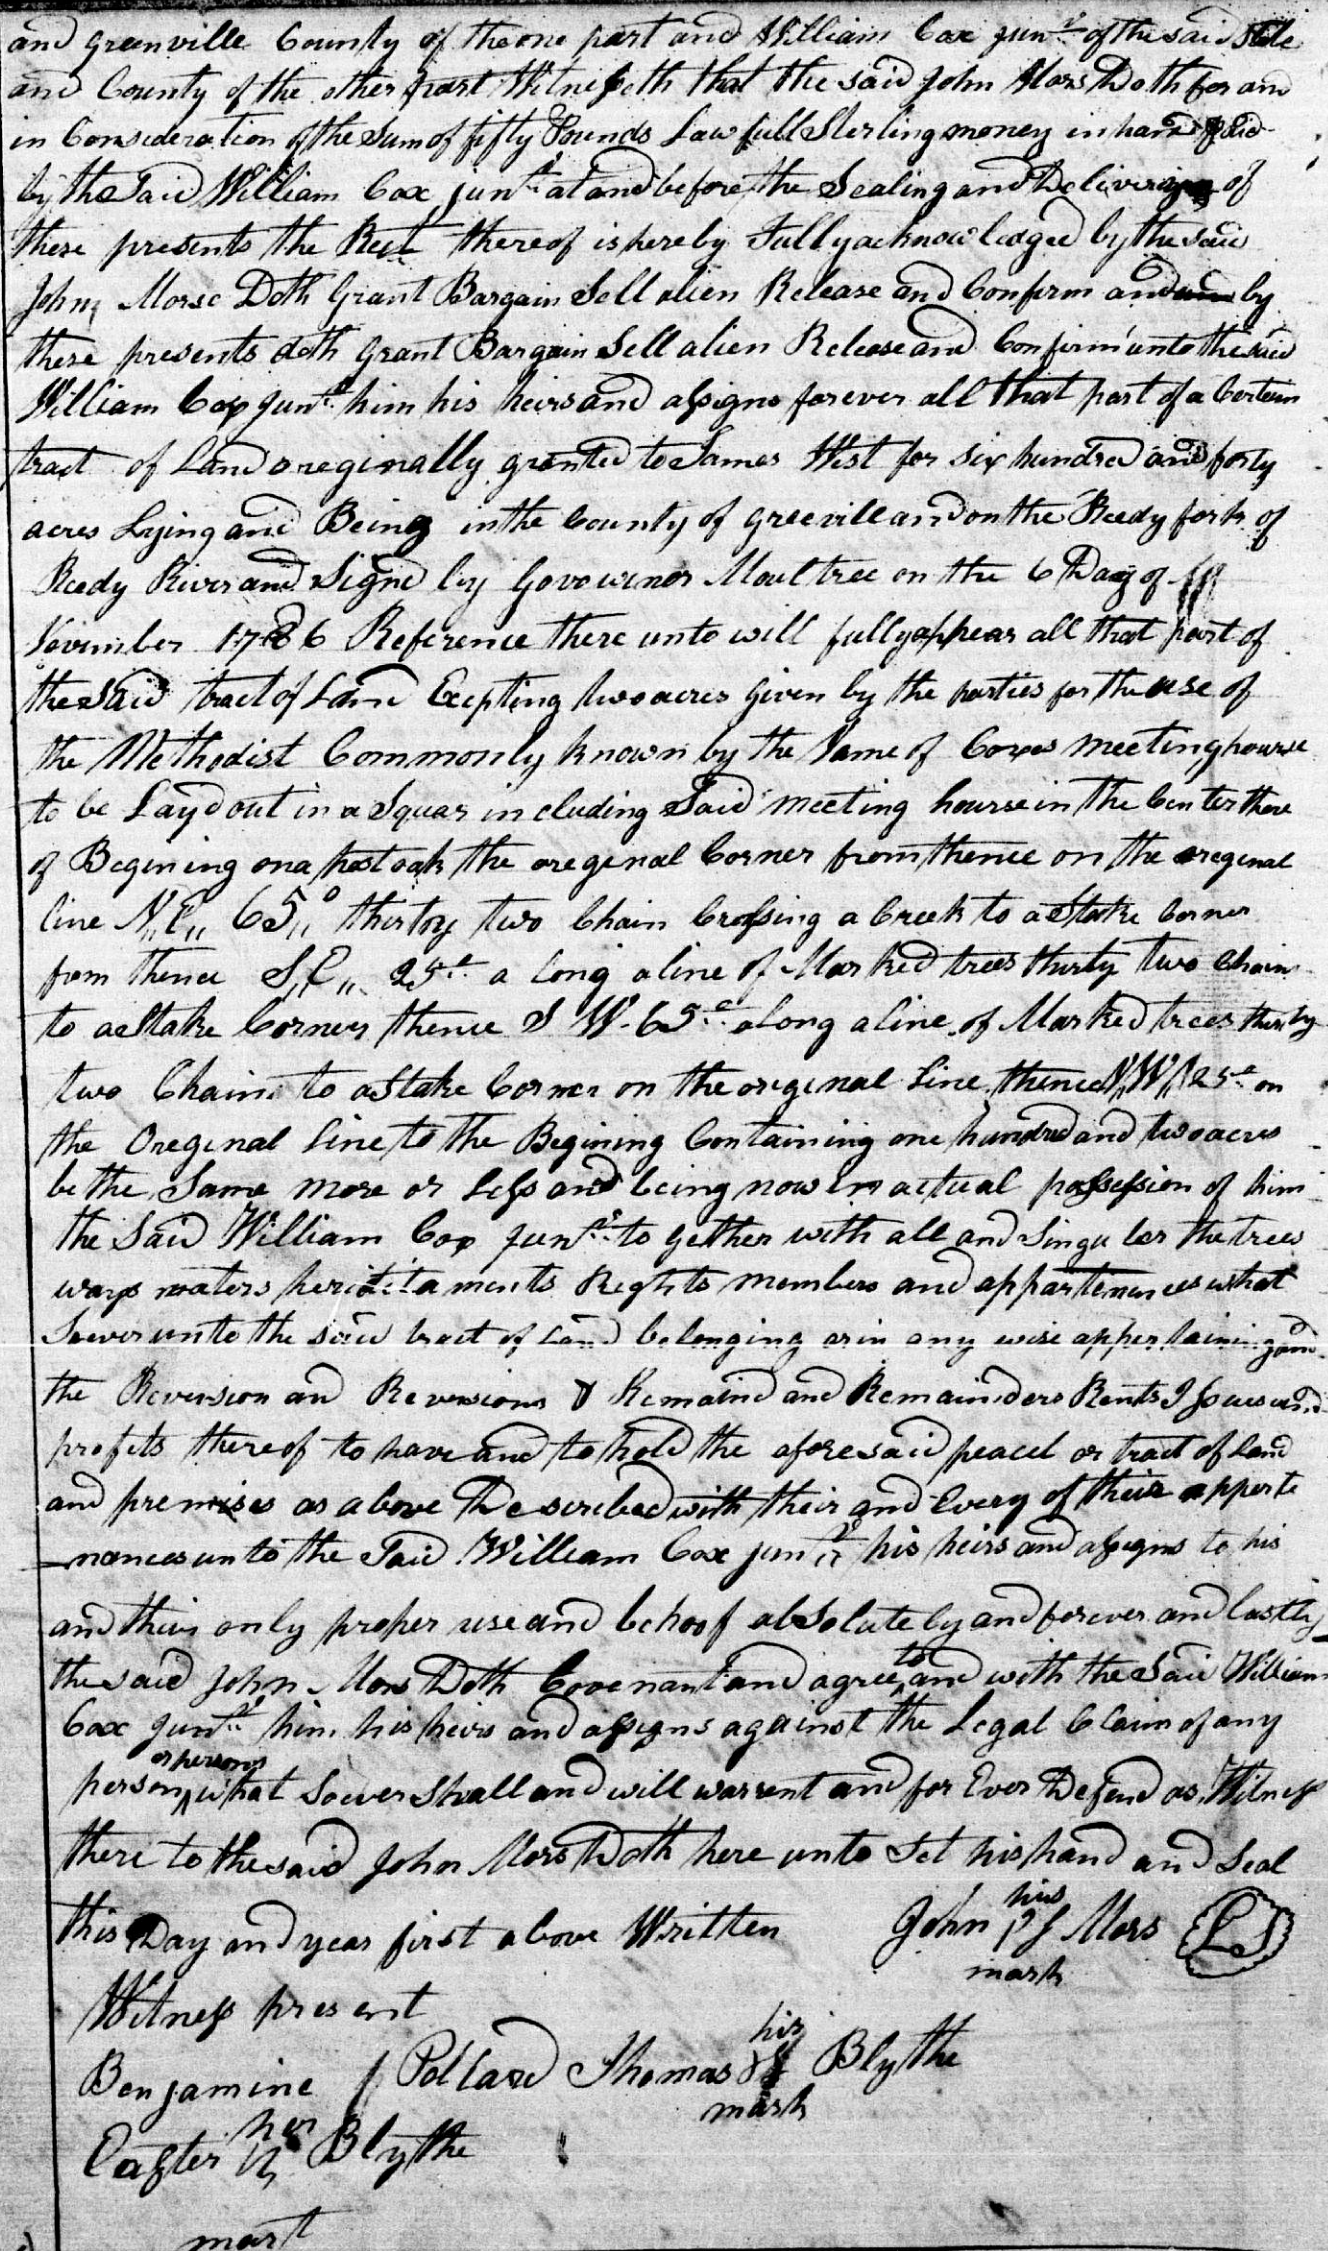 and Greenville County of the one part and William Cox junr. of the said State
and County of the other part Witnesseth that the said John Mors Doth for and
in Consideration of the Sum of fifty Pounds Lawfull Sterling money in hand paid
by the Said William Cox junr. at and before the Sealing and Delivering of
these presents the Rect thereof is hereby Fully acknowledged by the said
John Morse Doth Grant Bargain Sell alien Release and Confirm and by
these presents doth Grant Bargain Sell alien Release and Confirm unto the said
William Cox junr. him his heirs and assigns forever all that part of a Certain
tract of Land oreginally granted to James West for six hundred and forty
acres Lying and Being in the County of greeville and on the Reedy fork of
Reedy River and Signd by Govowrnor Moultree on the 6 Day of
Novimber 1786 Reference there unto will fully appear all that part of
the said tract of Land Excipting two acres given by the parties for the use of
the Methodist Commonly known by the Name of Coxes meeting hourse
to be Layd out in a Squar including Said meeting hourse in the Center there
of Begining on a post oak the oregenal Corner from thence on the oregenal
line N,,E,, 65,,° thirty two Chain Crossing a Creek to a Stake Corner
from thence S,,E,, 25d. a long a line of Marked trees thirty two Chain
to a Stake Corner thence S W. 65d. along a line of Marked trees thirty
two Chain to a Stake Corner on the original Line thence N,,W,, 25d. on
the Oregenal Line to the Begining Containing one hundred and two acres
be the Same more or Less and being now in actual possession of him
the Said William Cox junr. to gether with all and Singular the trees
ways waters heriditaments Rights members and appartenances what
Soever unto the said tract of Land belonging or in any wise appertaining and
the Reversion and Reversions & Remaind and Remainders Rents Issues and
profits thereof to have and to hold the aforesaid peacel or tract of Land
and premises as above Described with their and Every of their apperte
nances unto the Said William Cox junr. his heirs and assigns to his
and their only proper use and behoof absolutely and forever and lastly
the said John Mors Doth Covenant and agree to and with the Said William
Cox junr. him his heirs and assigns against the Legal Claim of any
person or persons what Soever Shall and will warrent and for Ever Defend as Witness
there to the said John Mors Doth here unto Set his hand and Seal
this Day and year first above Written John his Mors LS
mark
Witness present
Benjamine J Pollard Thomas his Blythe
mark
Easter her Blythe
mart